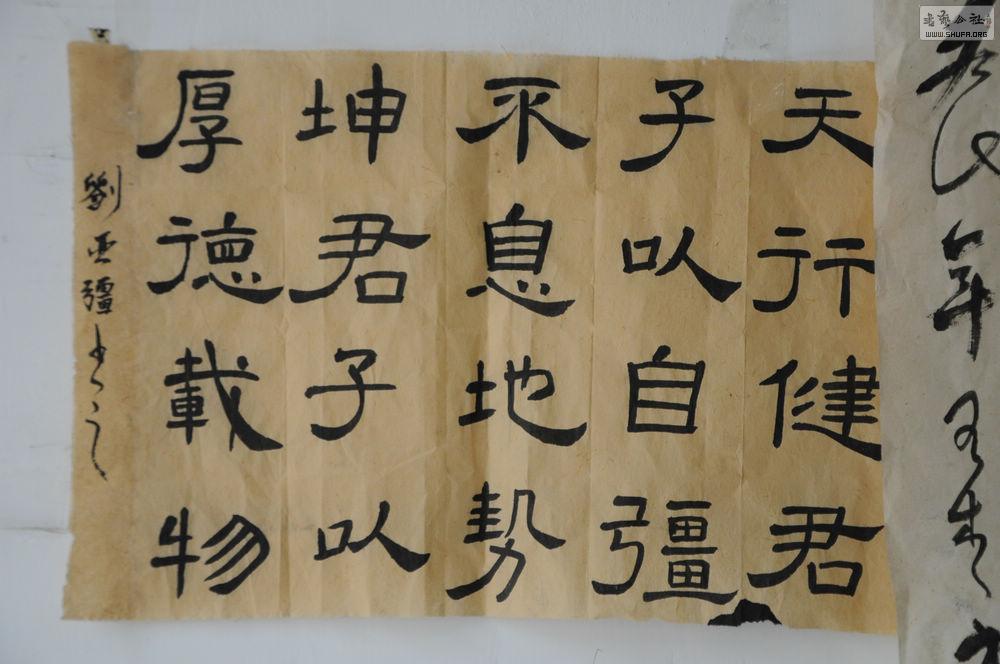 天行健君
子以自彊
不息地勢
坤君子以
厚德載物
劉亚疆书
年
WWW.SHUFA.ORG